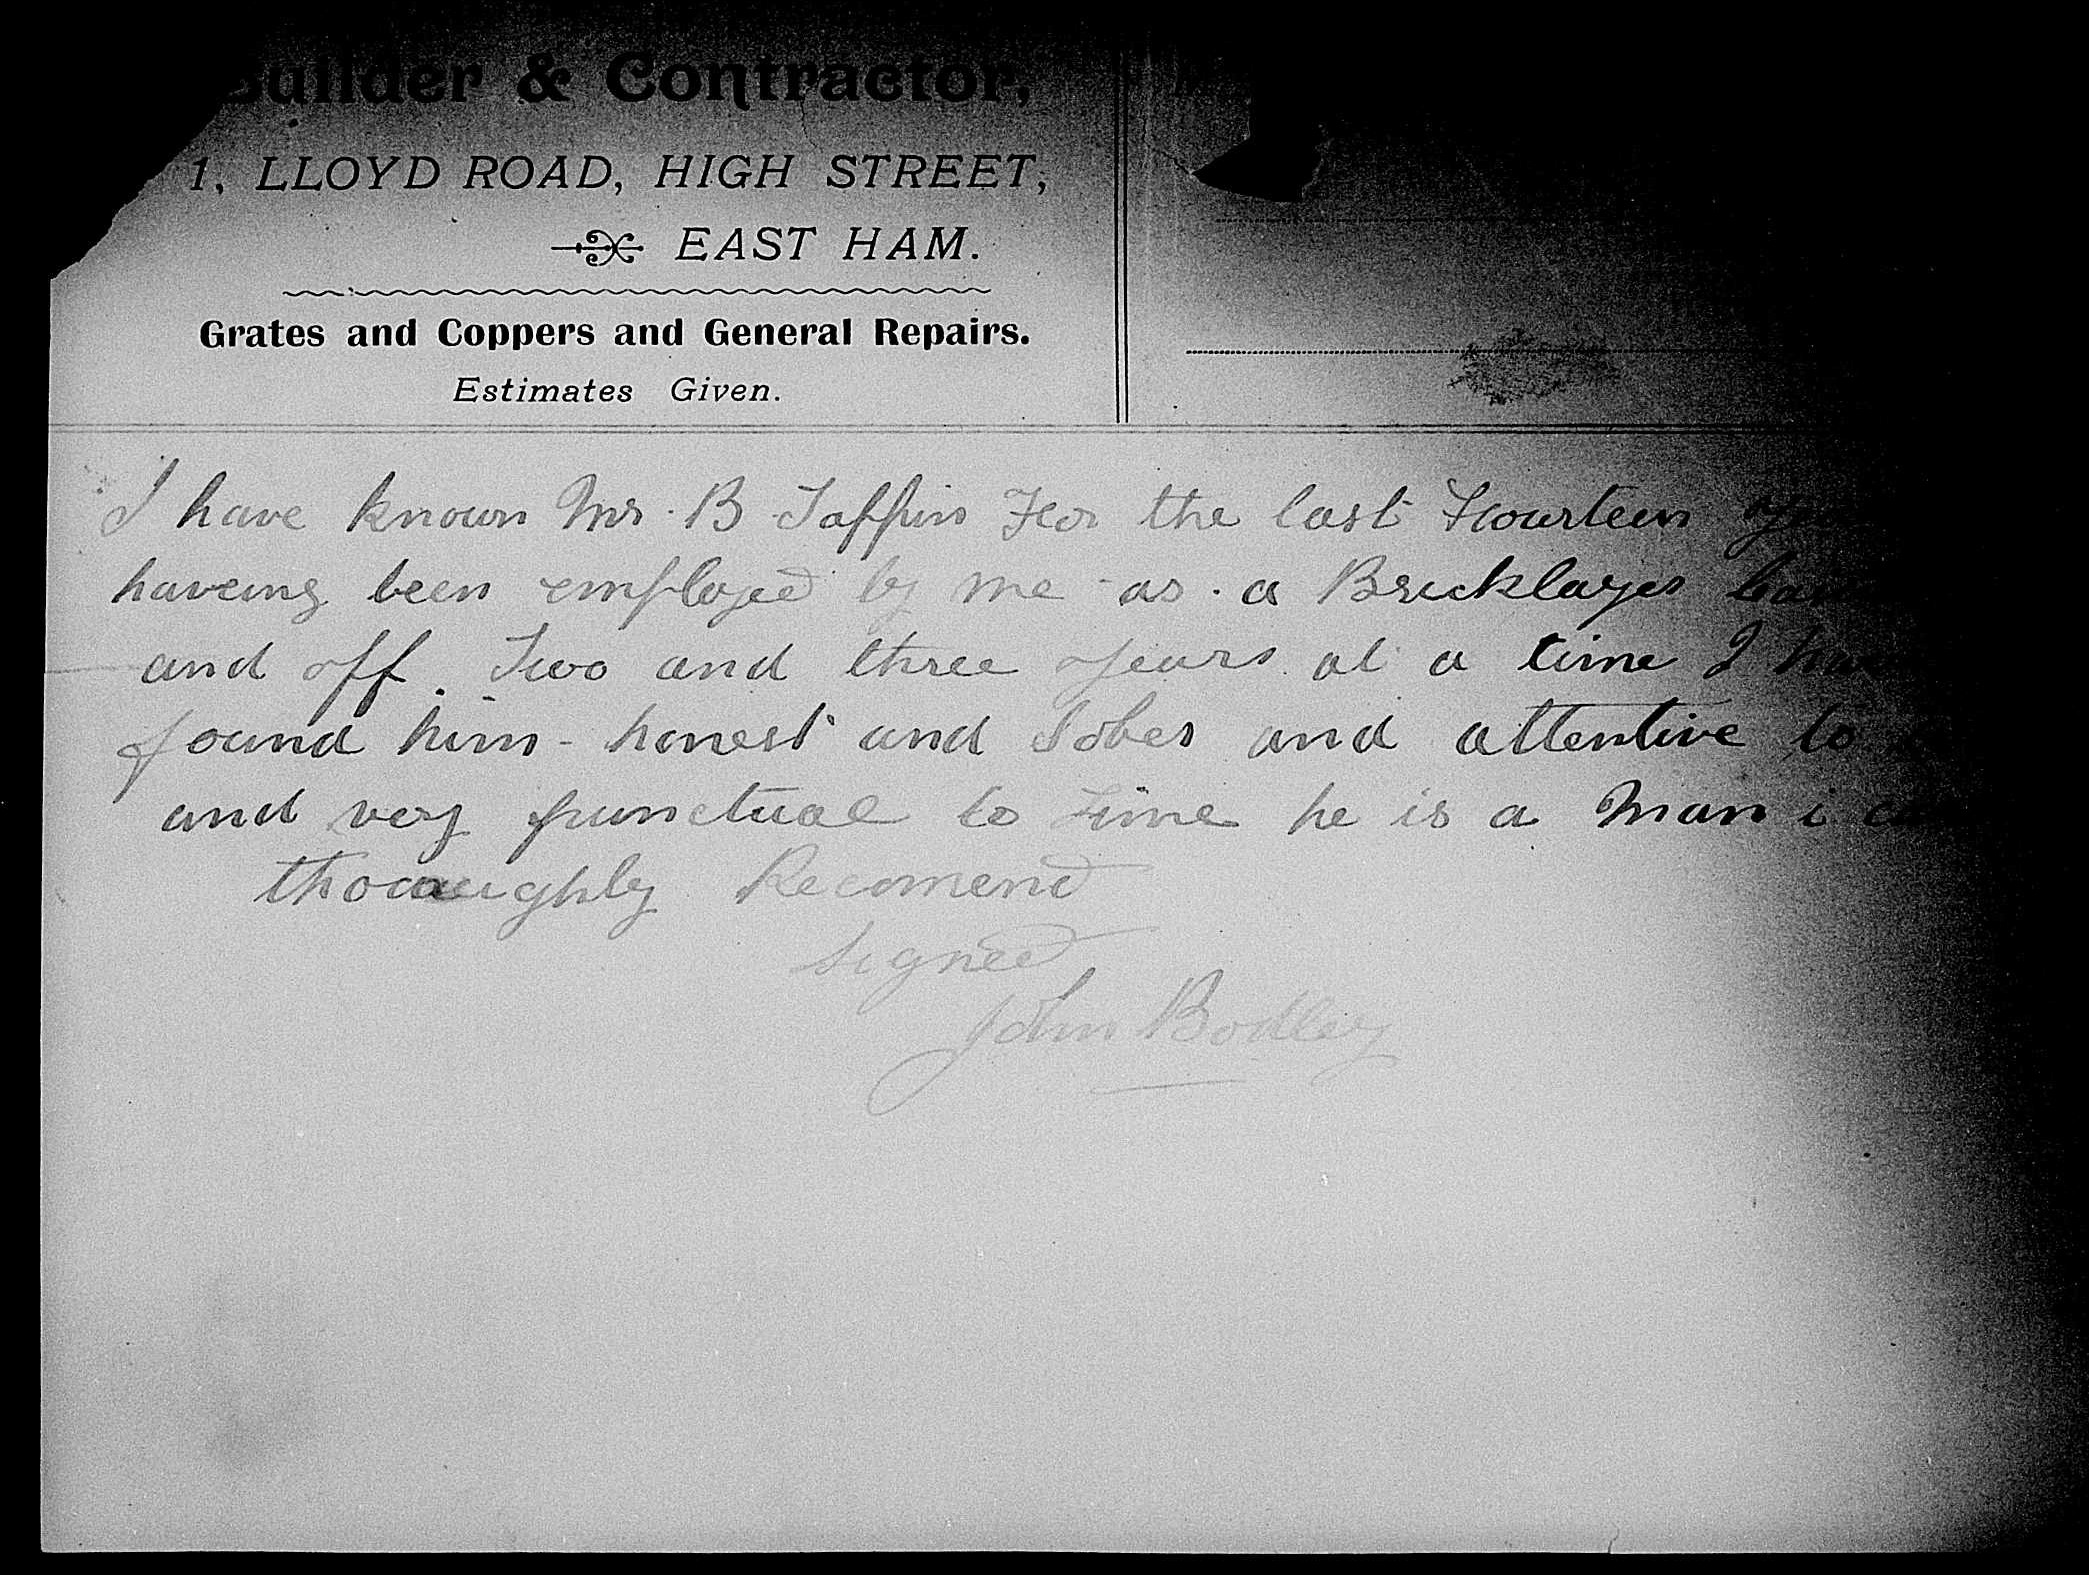 Builder & Contractor,
1, LLOYD ROAD, HIGH STREET,
EAST HAM.
Grates and Coppers and General Repairs.
Estimates Given.
I have known Mr. B Taffins For the last Fourteen
haveing been employed by me as a Bricklayer
and off. Two and three years at a time I
found him - honest and Sober and attentive to
and very punctual to time he is a Man i
thoroughly Recomend
Signed
John Bodley